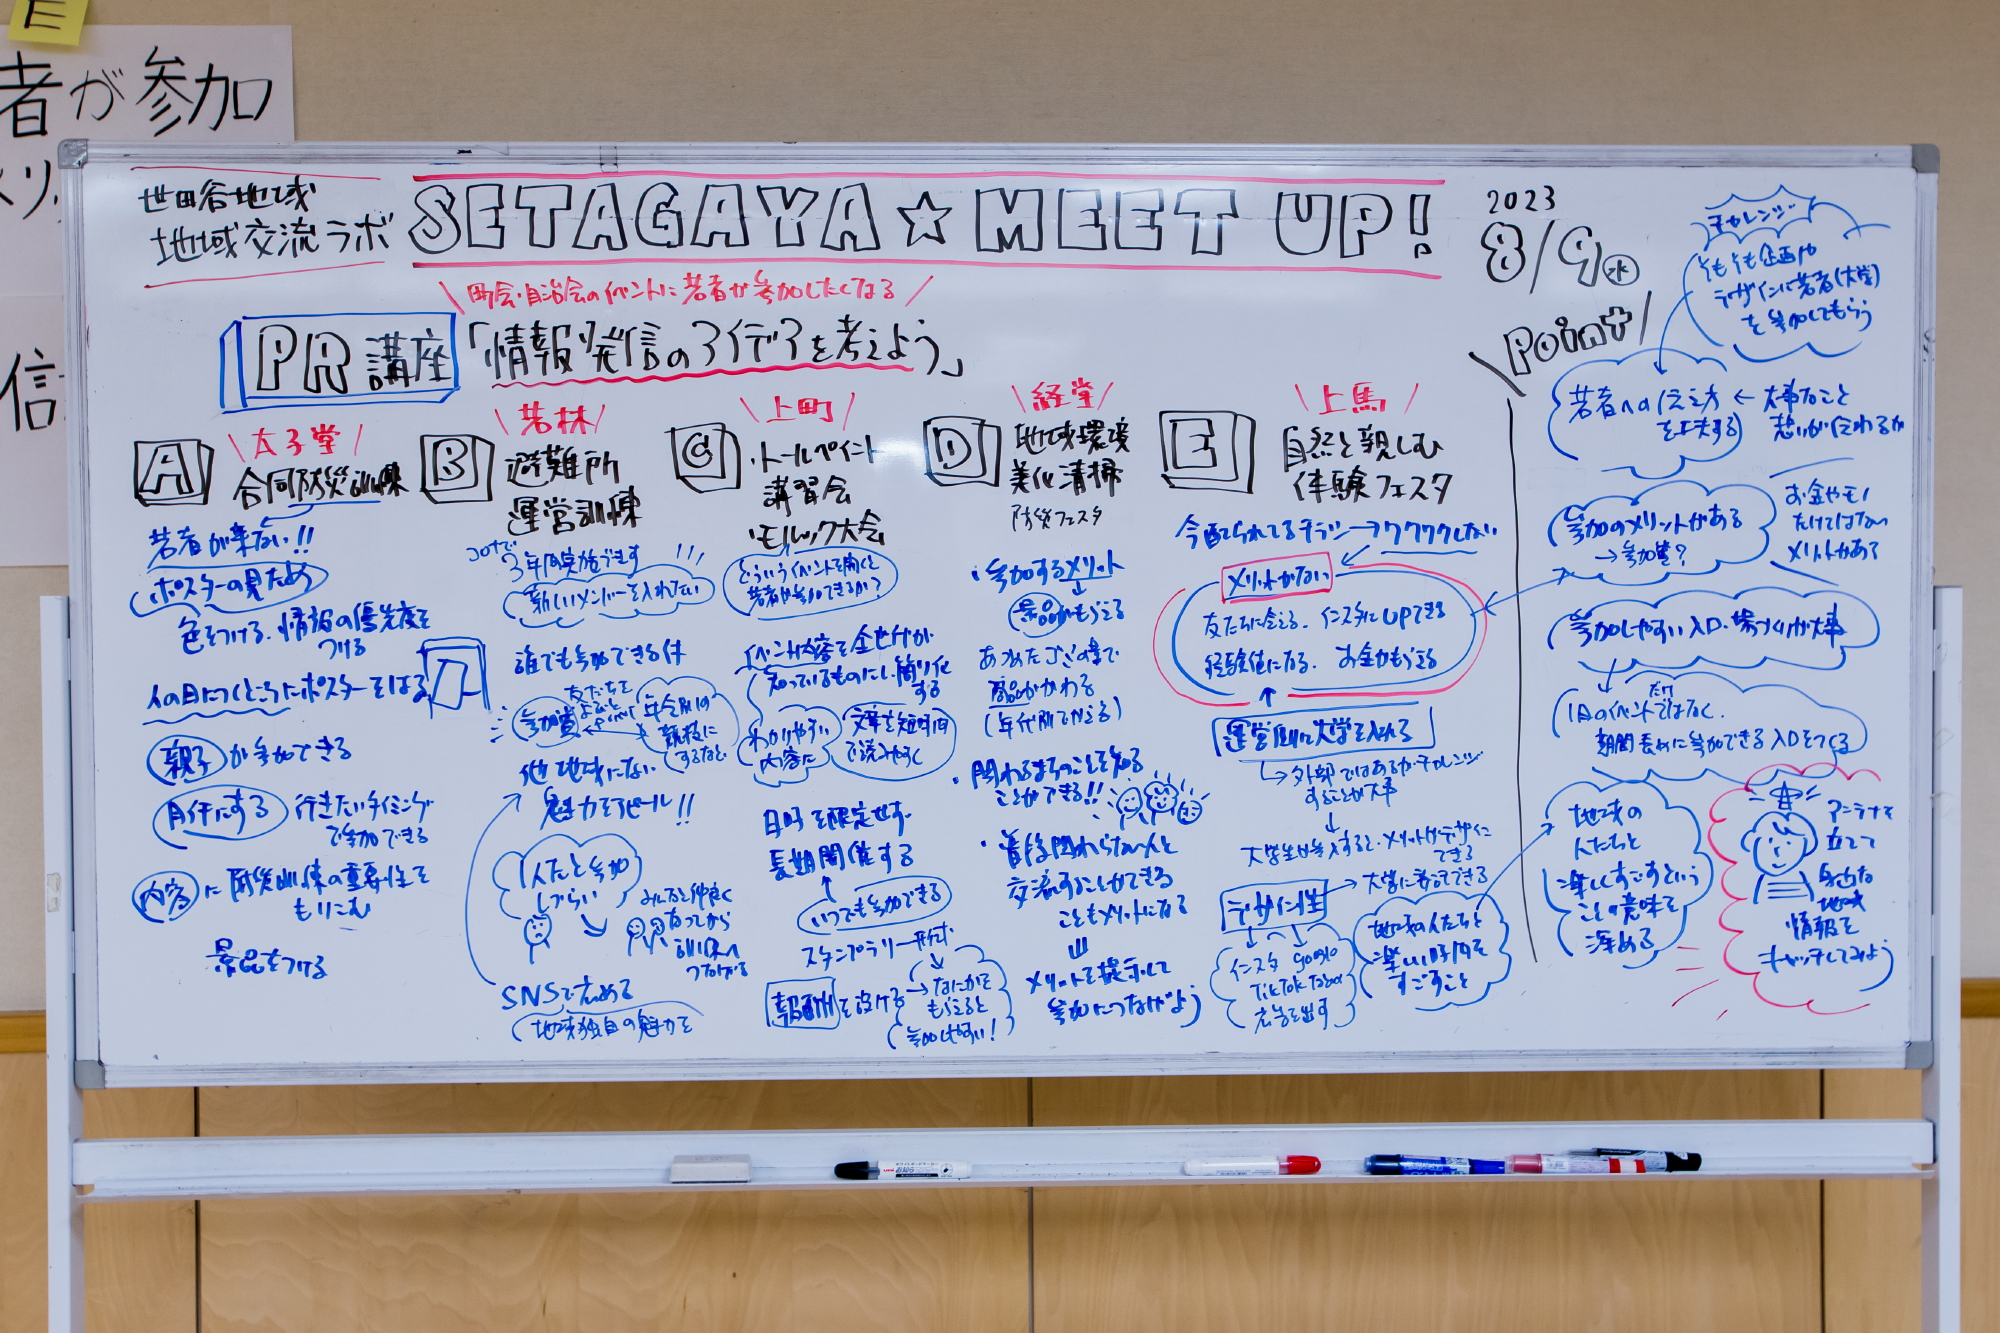 者が参加
メリ
信
世田谷地域
地域交流ラボ
SETAGAYA☆MEET UP!
2023
8/9 水
\町会・自治会のイベントに若者が参加したくなる/
PR講座
「情報発信のアイデアを考えよう」
A
\太子堂/
合同防災訓練
若者が来ない!!
ポスターの見ため
色をつける、情報の優先度を
つける
人の目につくところにポスターをはる
親子が参加できる
自由にする 行きたいタイミング
で参加できる
内容に防災訓練の重要性を
もりこむ
景品をつける
B
\若林/
避難所
運営訓練
コロナで
3年間実施できず
新しいメンバーを入れたい
誰でも参加できる件
友だちを
参加賞
年令別の
競技に
するなど
他地域にない
魅力をアピール!!
1人だと参加
しづらい
みんなと仲良く
なってから
訓練へ
つなげる
SNSで広める
地域独自の魅力を
C
\上町/
・トールペイント
講習会
・モルック大会
どういうイベントを開くと
若者が参加できるか?
イベント内容を全世代が
知っているものにし、簡り化
する
わかりやすい
内容に
文章を短時間
で読みやすく
日時を限定せず
長期開催する
いつでも参加できる
スタンプラリー形式
報酬を設ける
→なにかを
もらえると
参加しやすい!
D
\経堂/
地域環境
美化清掃
防災フェスタ
・参加するメリット
景品がもらえる
あつめたゴミの量で
商品がかわる
(年代別でかえる)
・関わるまちのことを知る
ことができる!!
・普段関わらない人と
交流することができる
こともメリットになる
メリットを提示して
参加につなげよう
E
\上馬/
自然と親しむ
体験フェスタ
今配られてるチラシ→ワクワクしない
メリットがない
友だちに会える、インスタにUPできる
経験値になる、お金がもらえる
運営側に大学を入れる
外部ではあるがチャレンジ
することが大事
大学生が参入すると、メリットやデザインに
できる
デザイン性
→大学に委託できる
インスタ google
TikTok
広告を出す
地域の人たちと
楽しい時間を
すごすこと
\Point/
チャレンジ
そもそも企画や
デザインに若者(大学)
を参加してもらう
若者への伝え方
を工夫する
←大事なこと
想いが伝わるか
参加のメリットがある
→参加賞?
お金やモノ
だけではない
メリットがある
参加しやすい入口・場づくりが大事
1日のイベントだけではなく、
期間長めに参加できる入口をつくる
地域の
人たちと
楽しくすごすという
ことの意味を
深める
アンテナを
立てて
身近な
地域
情報を
キャッチしてみよう